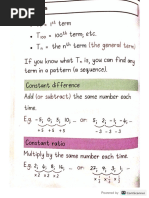 • T₁ = 1ˢᵗ term
• T₁₀₀ = 100ᵗʰ term, etc.
• Tₙ = the nᵗʰ term (the general term)
If you know what Tₙ is, you can find any
term in a pattern (a sequence).
Constant difference
Add (or subtract) the same number each
time.
Constant ratio
Multiply by the same number each
time.